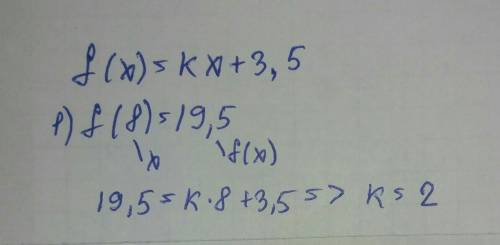 f(x)=kx+3,5
1) f(8)=19,5
\x \f(x)
19,5=k·8+3,5=> k=2